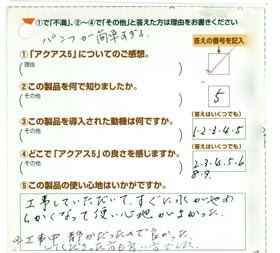 ①で「不満」、②～④で「その他」と答えた方は理由をお書きください
パンフが簡単すぎる。
答えの番号を記入
①「アクアス5」についてのご感想。
(理由
②この製品を何で知りましたか。
(その他
5
③この製品を導入された動機は何ですか。
(答えはいくつでも)
(その他
1・2・3・4・5
④どこで「アクアス5」の良さを感じますか。
(答えはいくつでも)
(その他
2・3・4・5・6
8・9・
⑤この製品の使い心地はいかがですか。
工事していただいて、すぐに水がやわ
らかくなって使い心地がよかった。
※工事中静かだったので良かった。
してくださった方も良い方でした。